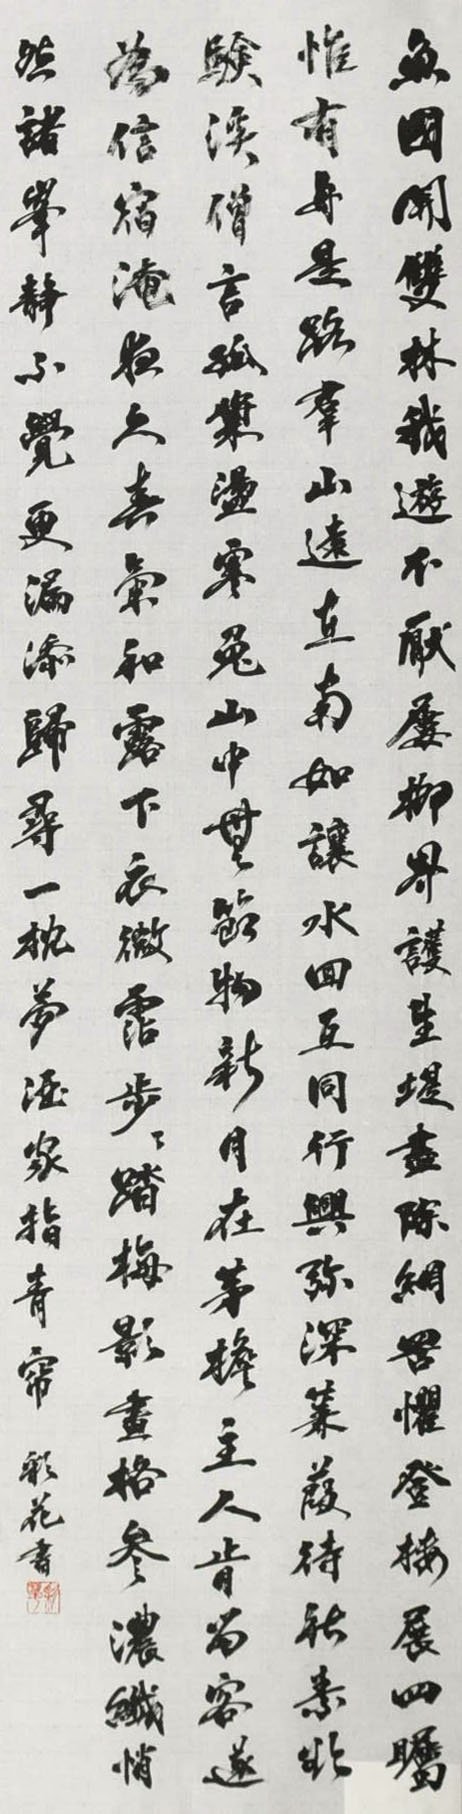 魚國開雙林我遊不厭屢挪界護生堤盡除網罟懼登樓展四矚
惟有舟是路羣山遠立南如讓水回互同行興弥深蒹葭待秋素欣
聯溪僧言孤槳盪寒兔山中無節物新月在茅檐主人肯留客遂
為信宿淹夜久春氣和露下衣微霑步々踏梅影畫格參濃纖悄
然諸峯靜不覺更漏添歸尋一枕夢酒家指青帘 彩花書